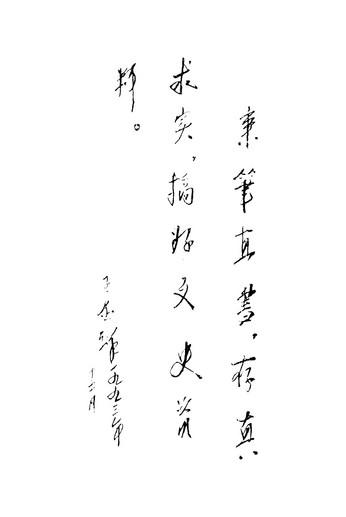 秉筆直書，存真
求实，搞好文史资
料。
一九九三年
十二月